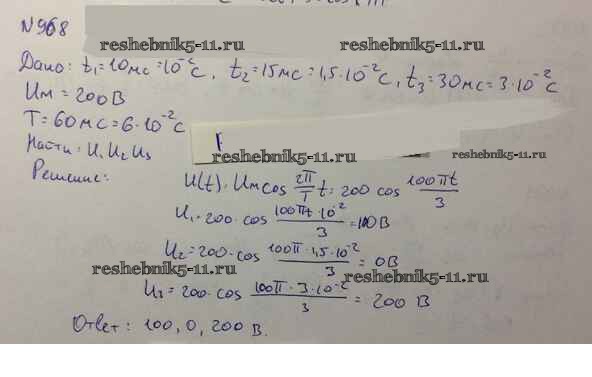 N968
reshebnik5-11.ru
Дано: t₁=10мс=10⁻²С, t₂=15мс=1,5·10⁻²С, t₃=30мс=3·10⁻²С
Uм=200В
T=60мс=6·10⁻²С
Найти: U₁ U₂ U₃
reshebnik5-11.ru reshebnik5-11.ru
Решение: U(t)=Uм cos 2π/T t=200 cos 100πt/3
U₁=200·cos 100πt·10⁻²/3=100В
U₂=200·cos 100π·1,5·10⁻²/3=0В
reshebnik5-11.ru reshebnik5-11.ru
U₃=200·cos 100π·3·10⁻²/3=200 В
Ответ: 100, 0, 200 В.